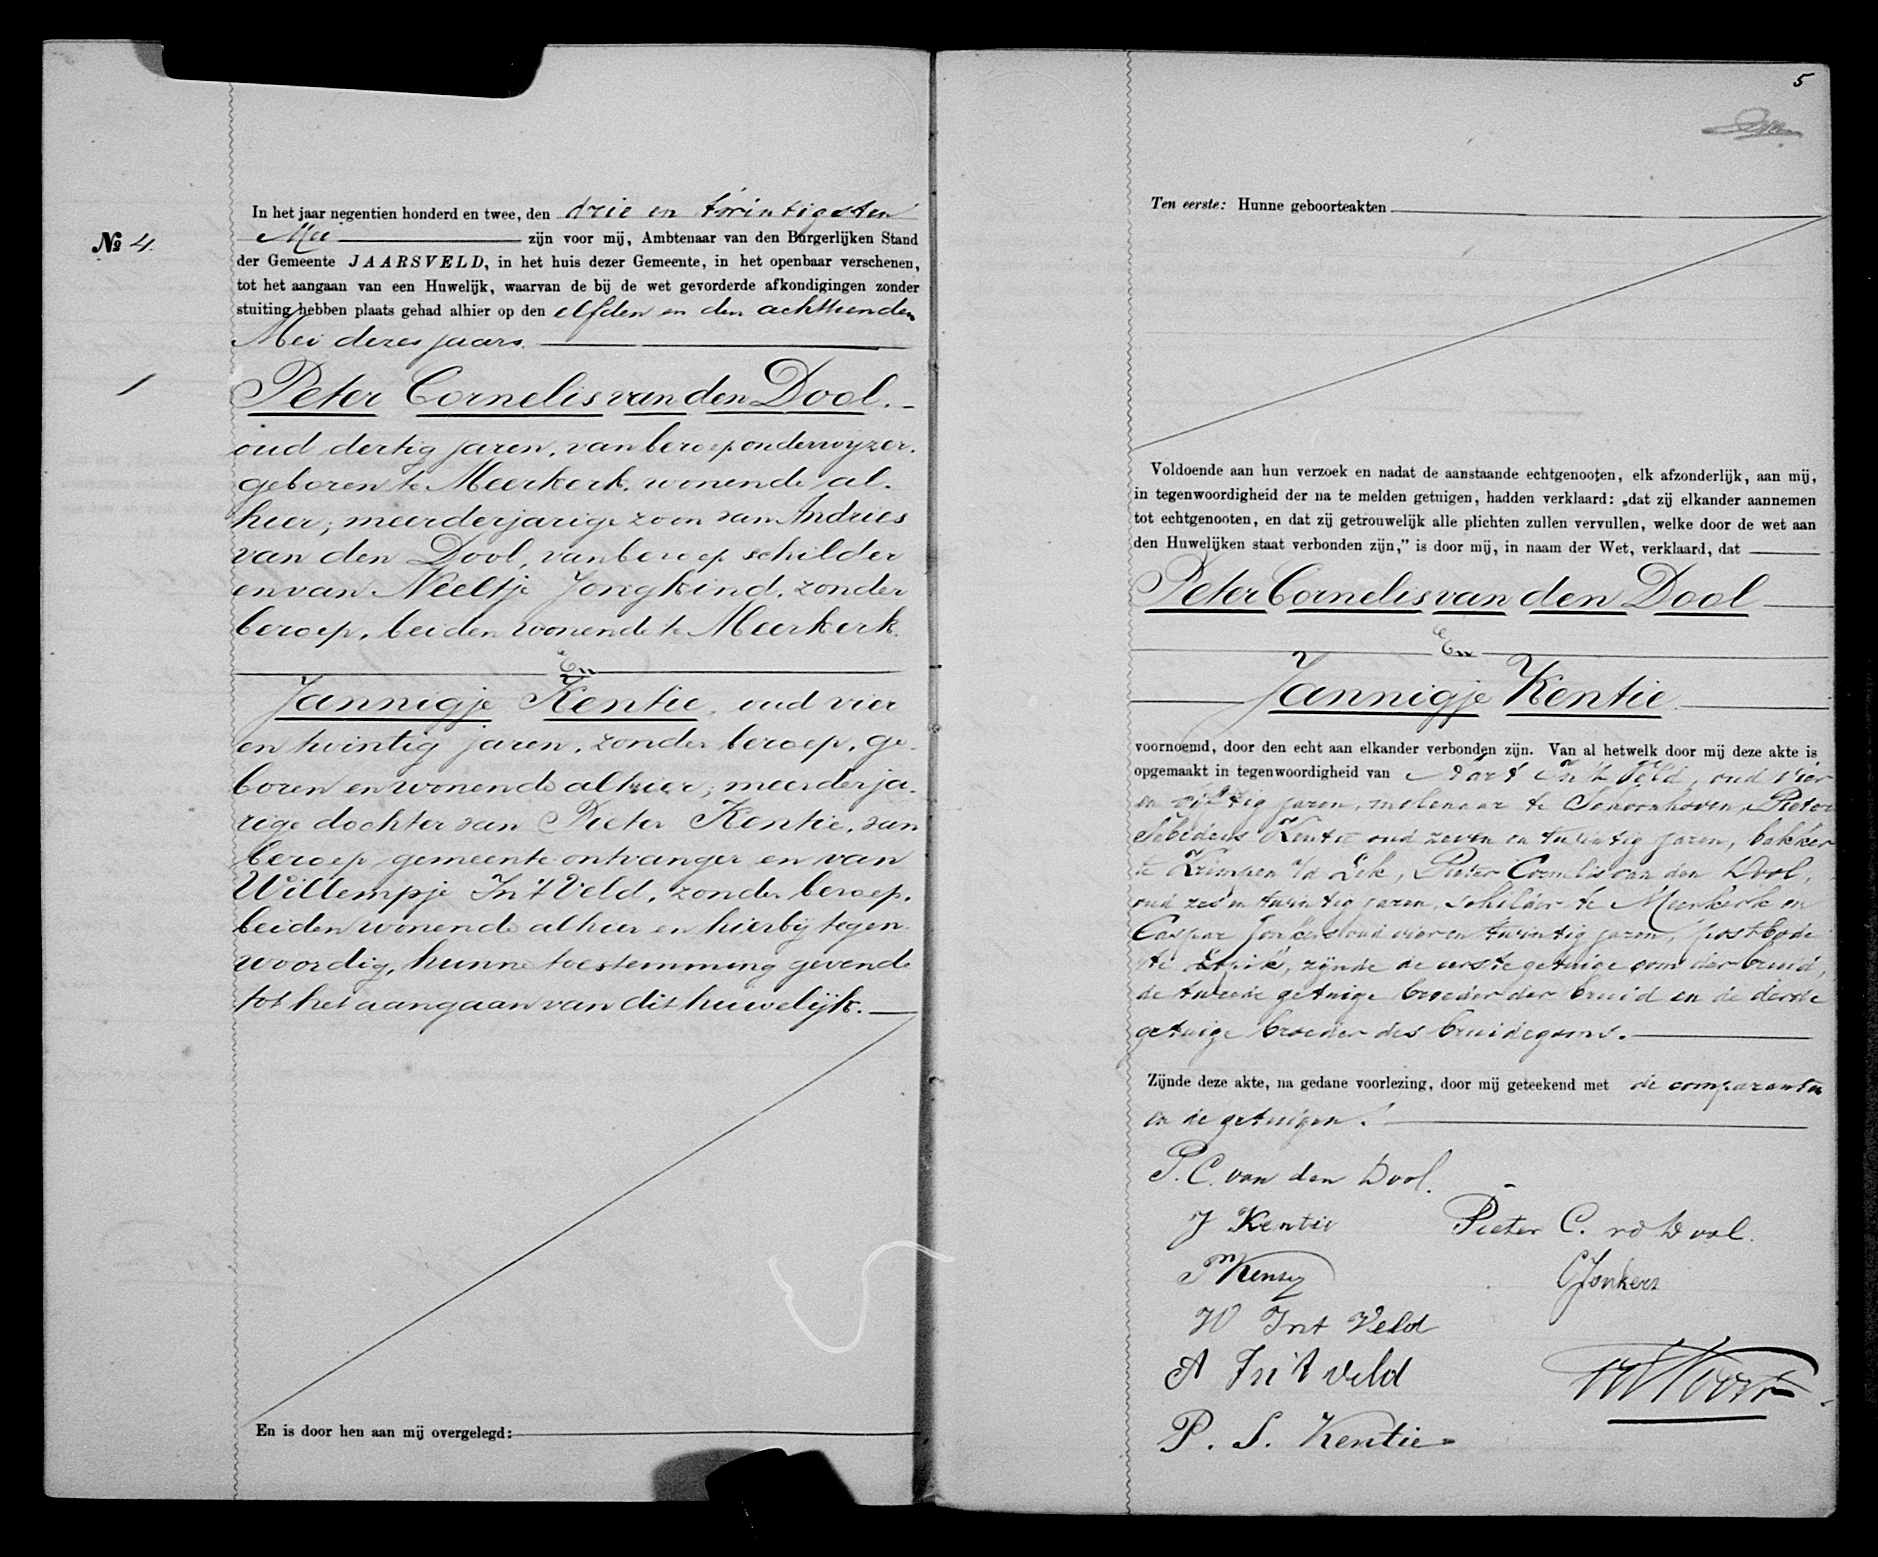 In het jaar negentien honderd en twee, den drie en twintigsten
Mei zijn voor mij, Ambtenaar van den Burgerlijken Stand
№ 4.
der Gemeente JAARSVELD, in het huis dezer Gemeente, in het openbaar verschenen,
tot het aangaan van een Huwelijk, waarvan de bij de wet gevorderde afkondigingen zonder
stuiting hebben plaats gehad alhier op den elfden en den achttienden
Mei dezes jaars.
Peter Cornelis van den Dool.
oud dertig jaren, van beroep onderwijzer,
geboren te Meerkerk, wonende al-
hier; meerderjarige zoon van Andries
van den Dool, van beroep schilder
en van Neeltje Jongkind, zonder
beroep, beiden wonende te Meerkerk.
En
Jannigje Kentie, oud vier
en twintig jaren, zonder beroep, ge-
boren en wonende alhier; meerderja-
rige dochter van Pieter Kentie, van
beroep gemeente-ontvanger en van
Willempje In 't Veld, zonder beroep,
beiden wonende alhier en hierbij tegen-
woordig, hunne toestemming gevende
tot het aangaan van dit huwelijk.
En is door hen aan mij overgelegd:
5
Ten eerste: Hunne geboorteakten
Voldoende aan hun verzoek en nadat de aanstaande echtgenooten, elk afzonderlijk, aan mij,
in tegenwoordigheid der na te melden getuigen, hadden verklaard: „dat zij elkander aannemen
tot echtgenooten, en dat zij getrouwelijk alle plichten zullen vervullen, welke door de wet aan
den Huwelijken staat verbonden zijn,” is door mij, in naam der Wet, verklaard, dat
Peter Cornelis van den Dool
En
Jannigje Kentie
voornoemd, door den echt aan elkander verbonden zijn. Van al hetwelk door mij deze akte is
opgemaakt in tegenwoordigheid van Aart In 't Veld, oud vier
en vijftig jaren, molenaar te Schoonhoven, Pieter
Kentie oud zeven en twintig jaren, bakker
te Krimpen a/d Lek, Pieter Cornelis van den Dool,
oud zes en twintig jaren, schilder te Meerkerk en
Caspar Jonkers oud vier en twintig jaren, postbode
te Lopik, zijnde de eerste getuige oom der bruid,
de tweede getuige broeder der bruid en de derde
getuige broeder des bruidegoms.
Zijnde deze akte, na gedane voorlezing, door mij geteekend met de comparanten
en de getuigen.
P. C. van den Dool.
J Kentie Pieter C. vd Dool.
P Kentie C Jonkers
W Int Veld
A In 't veld
P. S. Kentie